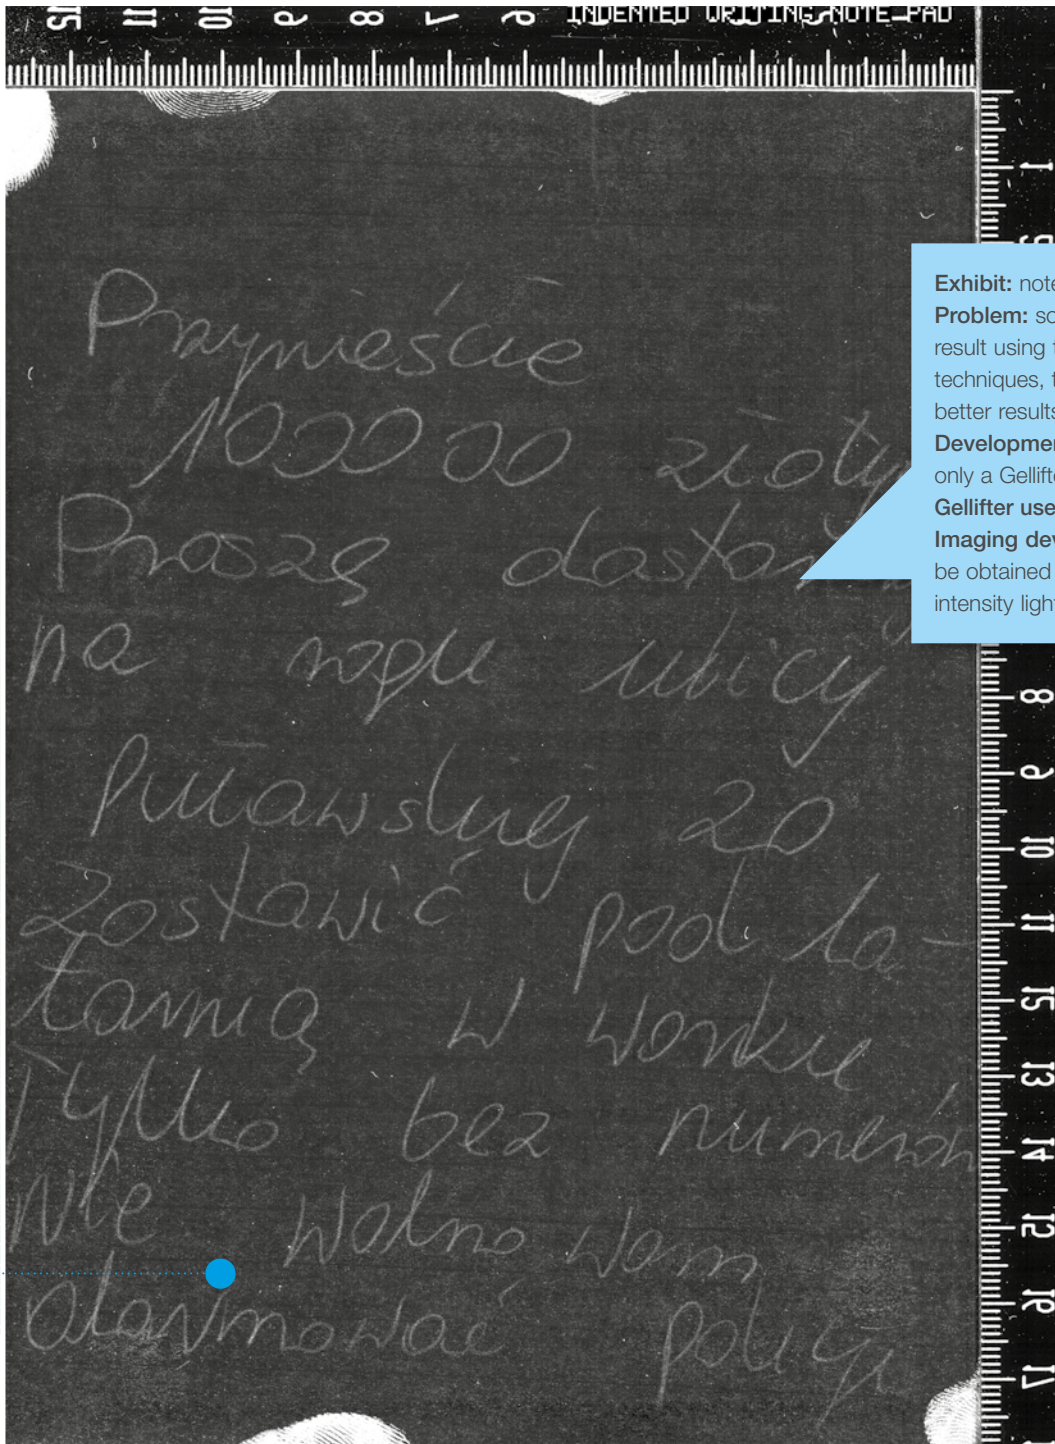 INDENTED WRITING NOTE PAD
15 11 10 9 8 7 6 5
Przynieście
100000 złoty
Proszę dostar
na rogu ulicy
Puławskiej 20
zostawić pod la-
tarnią w worku
Tylko bez numerów
Nie wolno wam
alarmować policji
1
8
9
10
11
12
13
14
15
16
17
Exhibit: note
Problem: so
result using
techniques, t
better results
Developmen
only a Gellifte
Gellifter use
Imaging dev
be obtained
intensity light